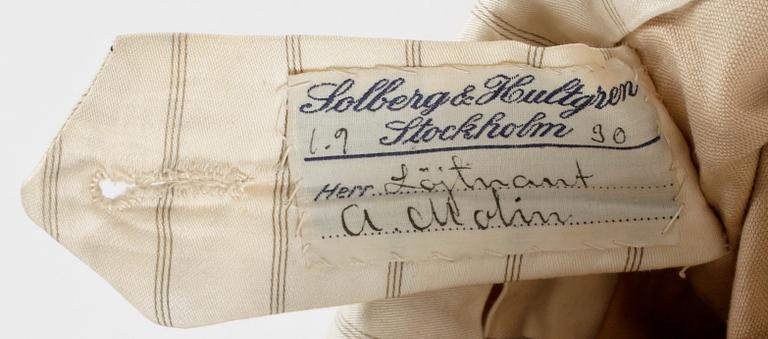 Solberg & Hultgren
1.9 Stockholm 30
Herr Löjtnant
A. Molin